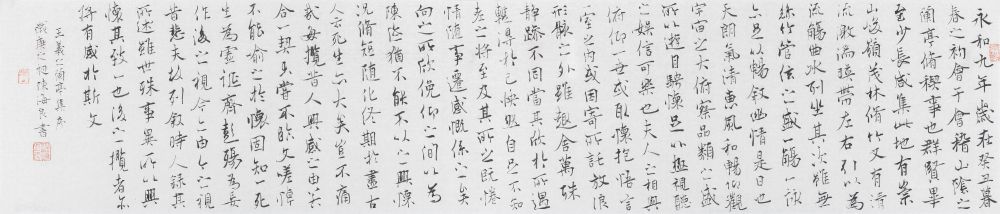 永和九年歲在癸丑暮
春之初會于會稽山陰之
蘭亭脩稧事也群賢畢
至少長咸集此地有崇
山峻領茂林脩竹又有清
流激湍暎帶左右引以為
流觴曲水列坐其次雖無
絲竹管弦之盛一觴一詠
亦足以暢敘幽情是日也
天朗氣清惠風和暢仰觀
宇宙之大俯察品類之盛
所以遊目騁懷足以極視聽
之娛信可樂也夫人之相與
俯仰一世或取諸懷抱悟言
一室之內或因寄所託放浪
形骸之外雖趣舍萬殊
靜躁不同當其欣於所遇
蹔得於己怏然自足不知
老之將至及其所之既惓
情隨事遷感慨係之矣
向之所欣俛仰之間以為
陳迹猶不能不以之興懷
況脩短隨化終期於盡古
人云死生亦大矣豈不痛
哉每攬昔人興感之由若
合一契未嘗不臨文嗟悼
不能喻之於懷固知一死
生為虛誕齊彭殤為妄
作後之視今亦由今之視
昔悲夫故列敘時人錄其
所述雖世殊事異所以興
懷其致一也後之攬者亦
將有感於斯文
王羲之蘭亭集序